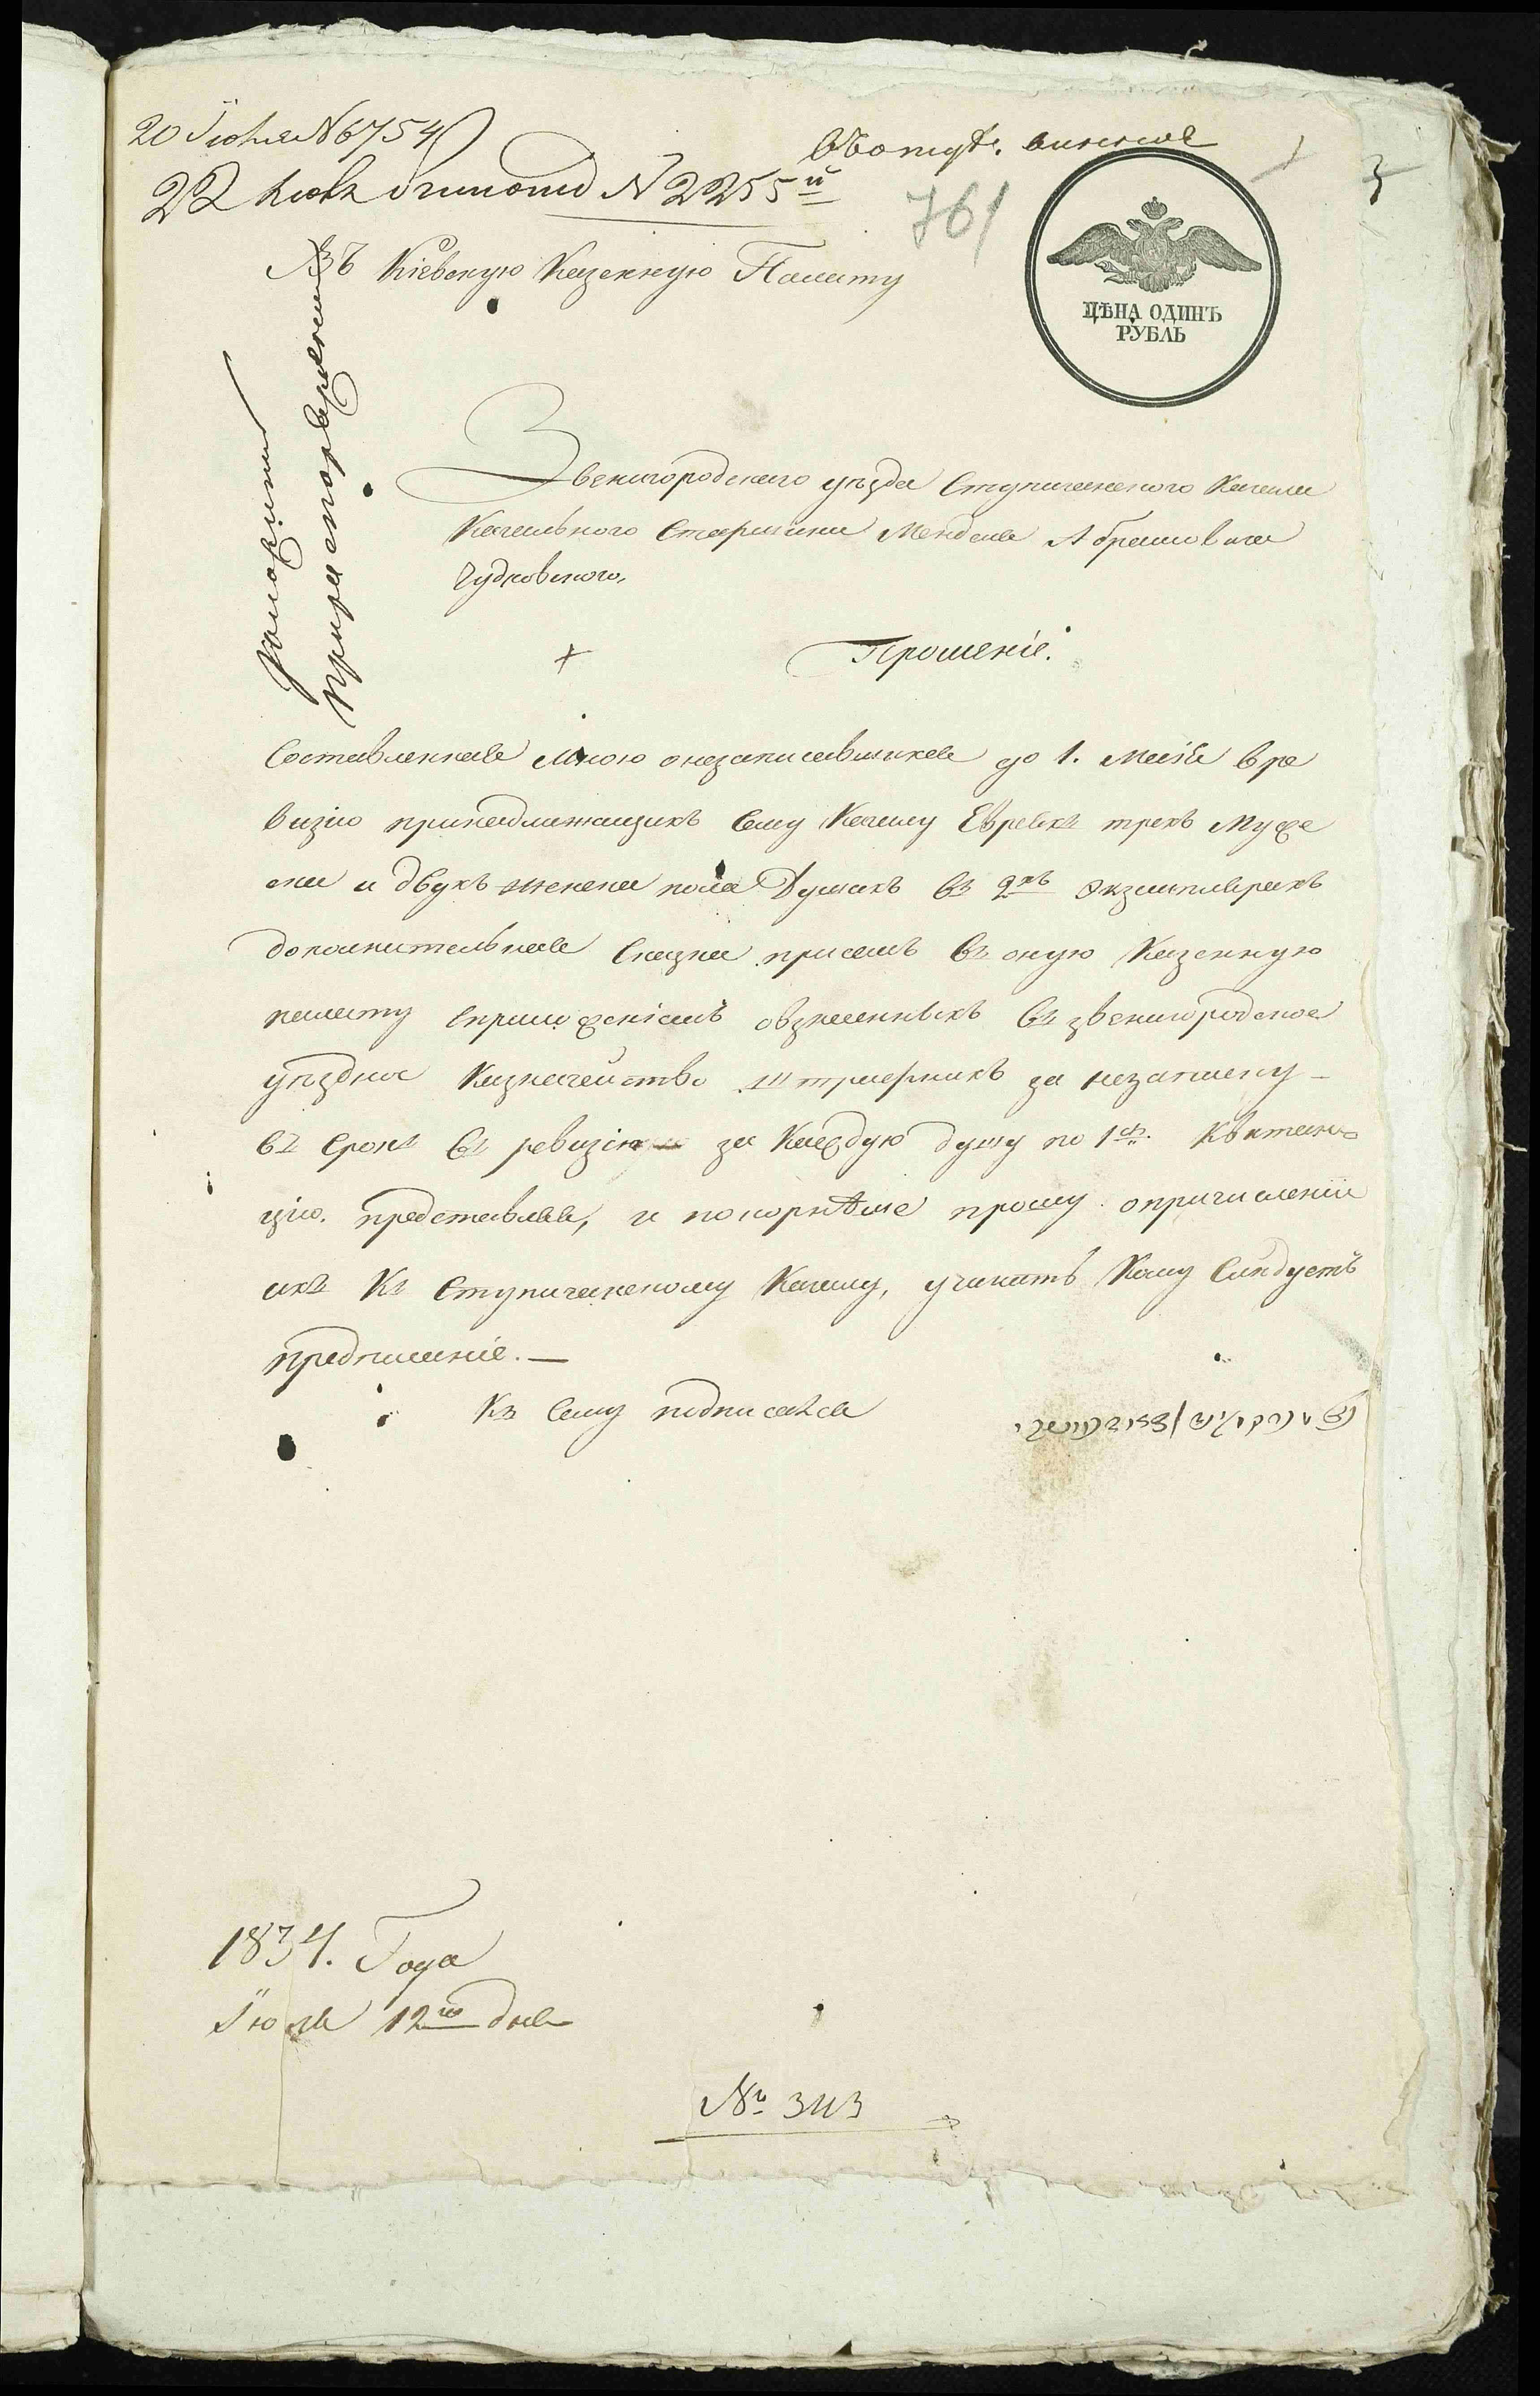 20 Іюня № 6754
22 Июня отисто № 2255й
761
3
Въ Кіевскую Казенную Палату
ЦѢНА ОДИНЪ
РУБЛЬ
Звенигородскаго уѣзда Ступичанского Кагала
Кагального Старшины Менделя Абрамовича
Чудновского,
Прошеніе.
Составленные Мною о незаписавшихся до 1. Маія в ре
визію принадлежащихъ Сему Кагалу Евреяхъ трехъ Муже
ска и двухъ женска пола Душахъ въ 2хъ экземплярахъ
дополнительные Сказки при семъ въ оную Казенную
палату съприложеніемъ овзнесенныхъ въ звенигородское
уѣздное Казначейство штрафныхъ за незаписку
въ Срокъ въ ревизію за Каждую душу по 1 Квитан-
цію. представляя, и покорнѣше прошу опричисленіи
ихъ Къ Ступичанскому Кагалу, учинить Кому Слѣдуетъ
предписаніе. —
Къ Сему подписался
1834. Года
Іюня 12го дня
№ 343